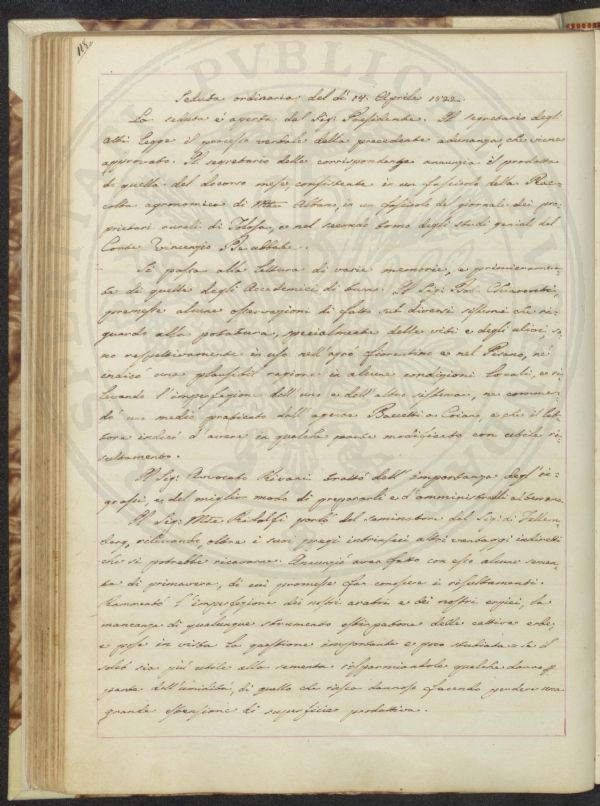 118.
Seduta ordinaria del dì 14. Aprile 1822.
La seduta è aperta dal Sig. Presidente. Il segretario degli
atti legge il processo verbale della precedente adunanza, che viene
approvato. Il segretario delle corrispondenze annunzia il prodotto
di quella del decorso mese, consistente in un fascicolo della Rac-
colta agronomica di Albano, in un fascicolo del giornale dei pro-
prietari rurali di Tolosa, e nel secondo tomo degli studi geniali del
Conte Vincenzio
Si passa alla lettura di varie memorie, e primieramen-
te di quelle degli Accademici di turno. Il Sig. Chiarenti
premesse alcune osservazioni di fatto sui diversi sistemi che ri-
guardo alla potatura, specialmente delle viti e degli ulivi so-
no respettivamente in uso nell'agro fiorentino e nel Pesano, ne
una plausibil ragione in alcune condizioni locali, e ri-
levando l'imperfezione dell'uno e dell'altro sistema, ne commen-
dò un medio praticato dall'agente Baccetti a e che il let-
tore indicò d'avere in qualche parte modificato con utile ri-
sultamento.
Il Sig. Avvocato Rivani trattò dell'importanza degl'in-
grassi, e del miglior modo di prepararli e d'amministrarli ai terreni.
Il Sig. Ridolfi parlò del seminatore del Sig. di Fellen-
berg, rilevando, oltre i suoi pregi intrinseci altri vantaggi indiretti
che si potrebbe ricavarne. Annunziò aver fatto con esso alcune semen-
te di primavera, di cui promesse far conoscere i risultamenti.
Rammentò l'imperfezione dei nostri aratri e dei nostri erpici, la
mancanza di qualunque strumento estirpatore delle cattive erbe,
e pose in vista la questione importante e poco studiata se il
solco sia più utile alla sementa risparmiandole qualche danno p.
parte dell'umidità, di quello che riesca dannoso facendo perdere una
grande estensione di superficie produttiva.